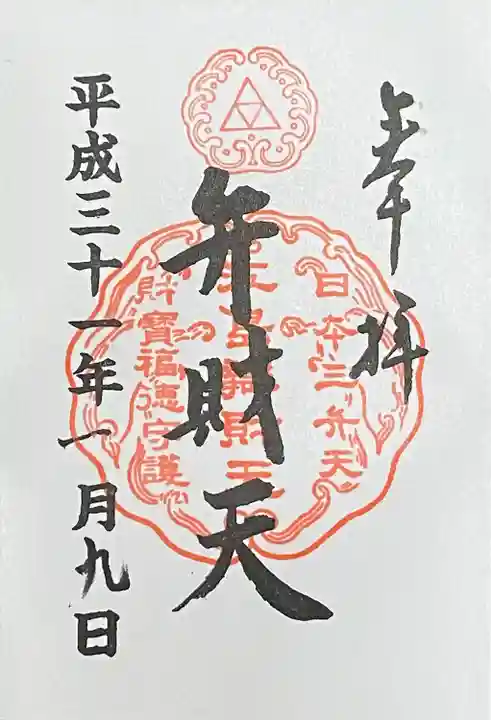 奉拝
日本三弁天
弁財天
財寳福徳守護
平成三十一年一月九日